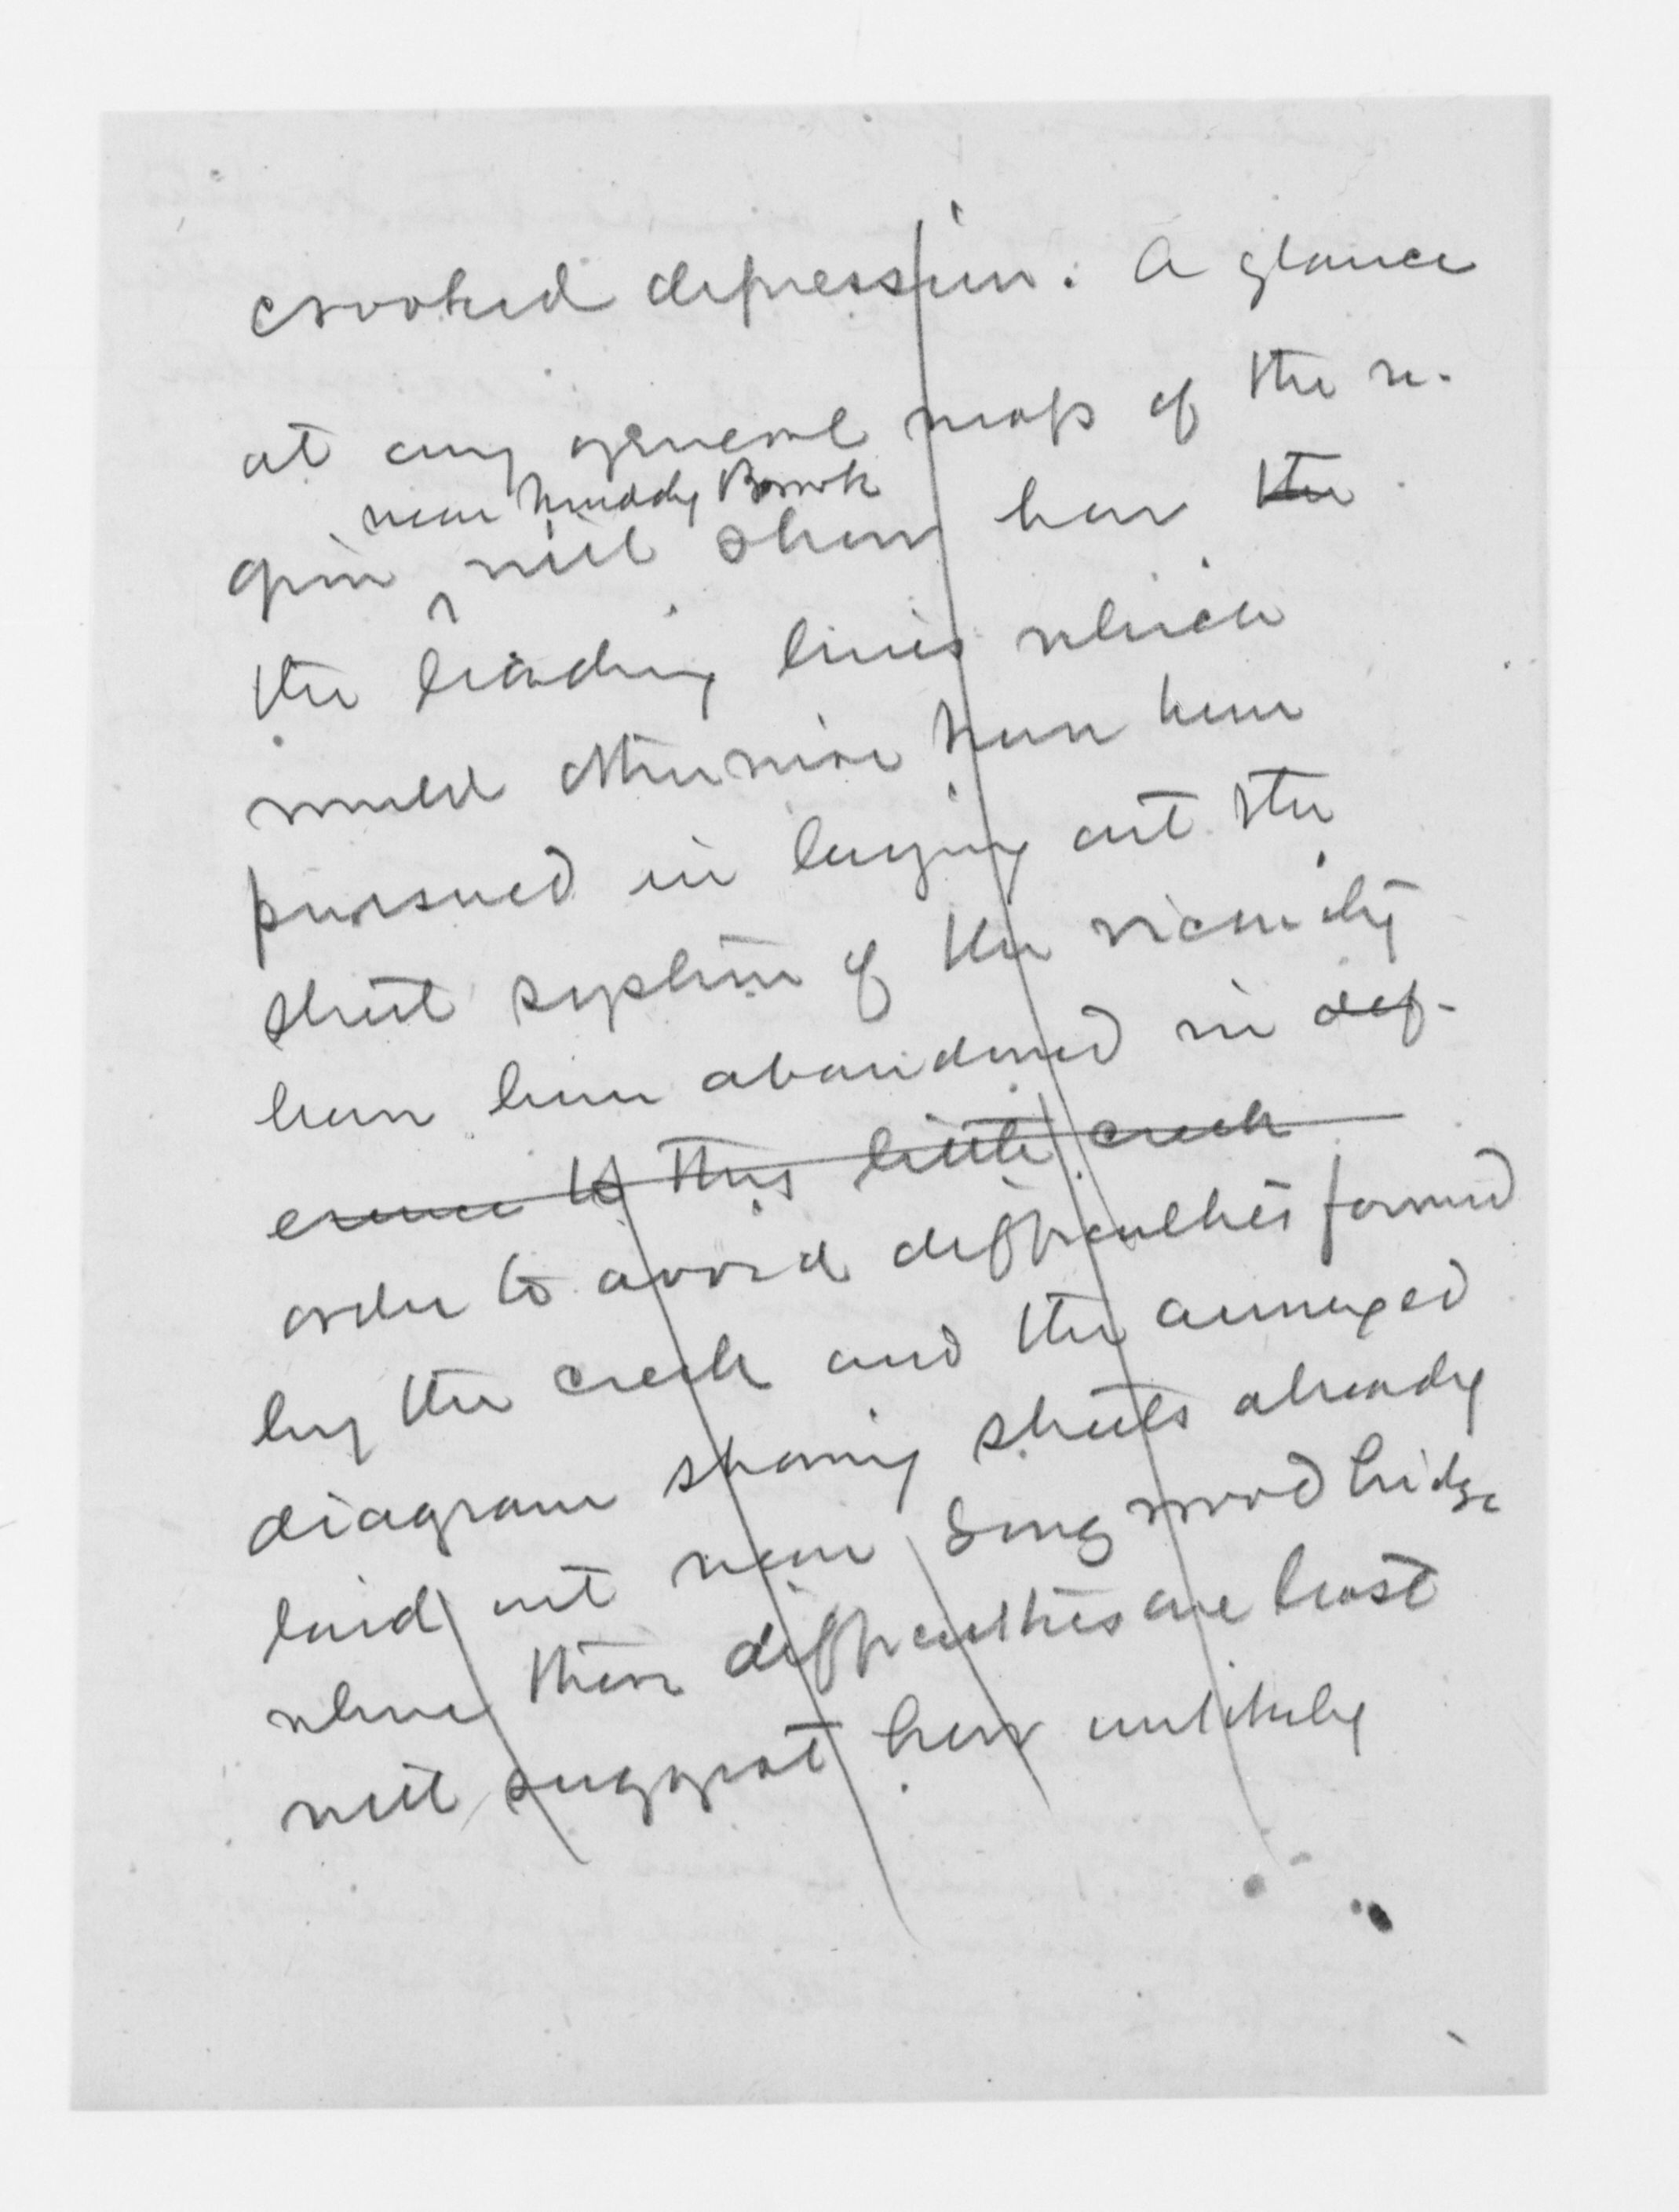 crooked depression. A glance
at any general map of the re-
near Muddy Brook
gion will show how the
the leading lines which
would otherwise have been
pursued in laying out the
street system of the vicinity
have been abandoned in def-
erence to this little creek
order to avoid difficulties formed
by the creek and the annexed
diagram showing streets already
laid out near Longwood bridge
where these difficulties are least
will suggest how unlikely